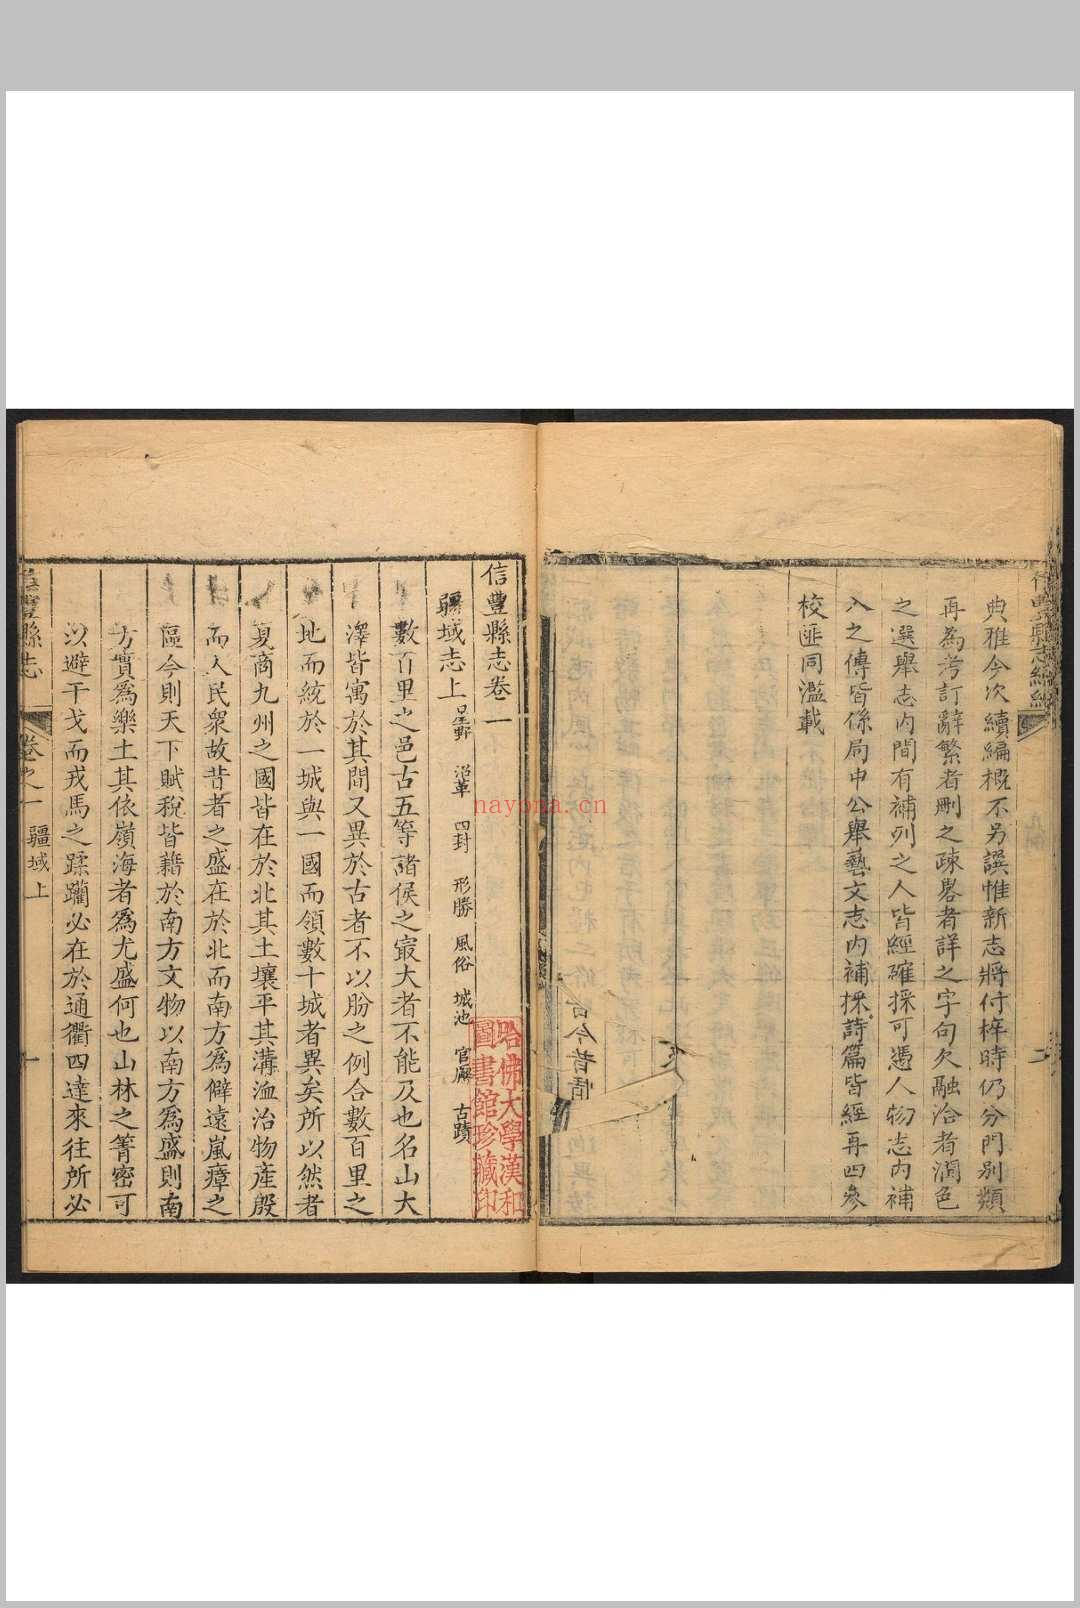 典雅今次續編概不另譔惟新志將付梓時仍分門別類
再為考訂辭繁者刪之疎畧者詳之字句欠融洽者潤色
之選舉志內間有補列之人皆經確採可憑人物志內補
入之傳皆係局中公舉藝文志內補採詩篇皆經再四參
校匪同濫載
二
古今者情
信豐縣志卷一
疆域志上 星野 沿革 四封 形勝 風俗 城池 官廨 古蹟
哈佛大學漢和
圖書館珍藏印
數百里之邑古五等諸侯之冣大者不能及也名山大
澤皆寓於其間又異於古者不以肦之例合數百里之
地而統於一城與一國而領數十城者異矣所以然者
夏商九州之國皆在於北其土壤平其溝洫治物產殷
而人民衆故昔者之盛在於北而南方爲僻遠嵐瘴之
區今則天下賦稅皆籍於南方文物以南方爲盛則南
方實爲樂土其依嶺海者爲尤盛何也山林之箐密可
以避干戈而戎馬之蹂躪必在於通衢四達來往所必
信豐縣志 卷之一 疆域上
nayona.cn